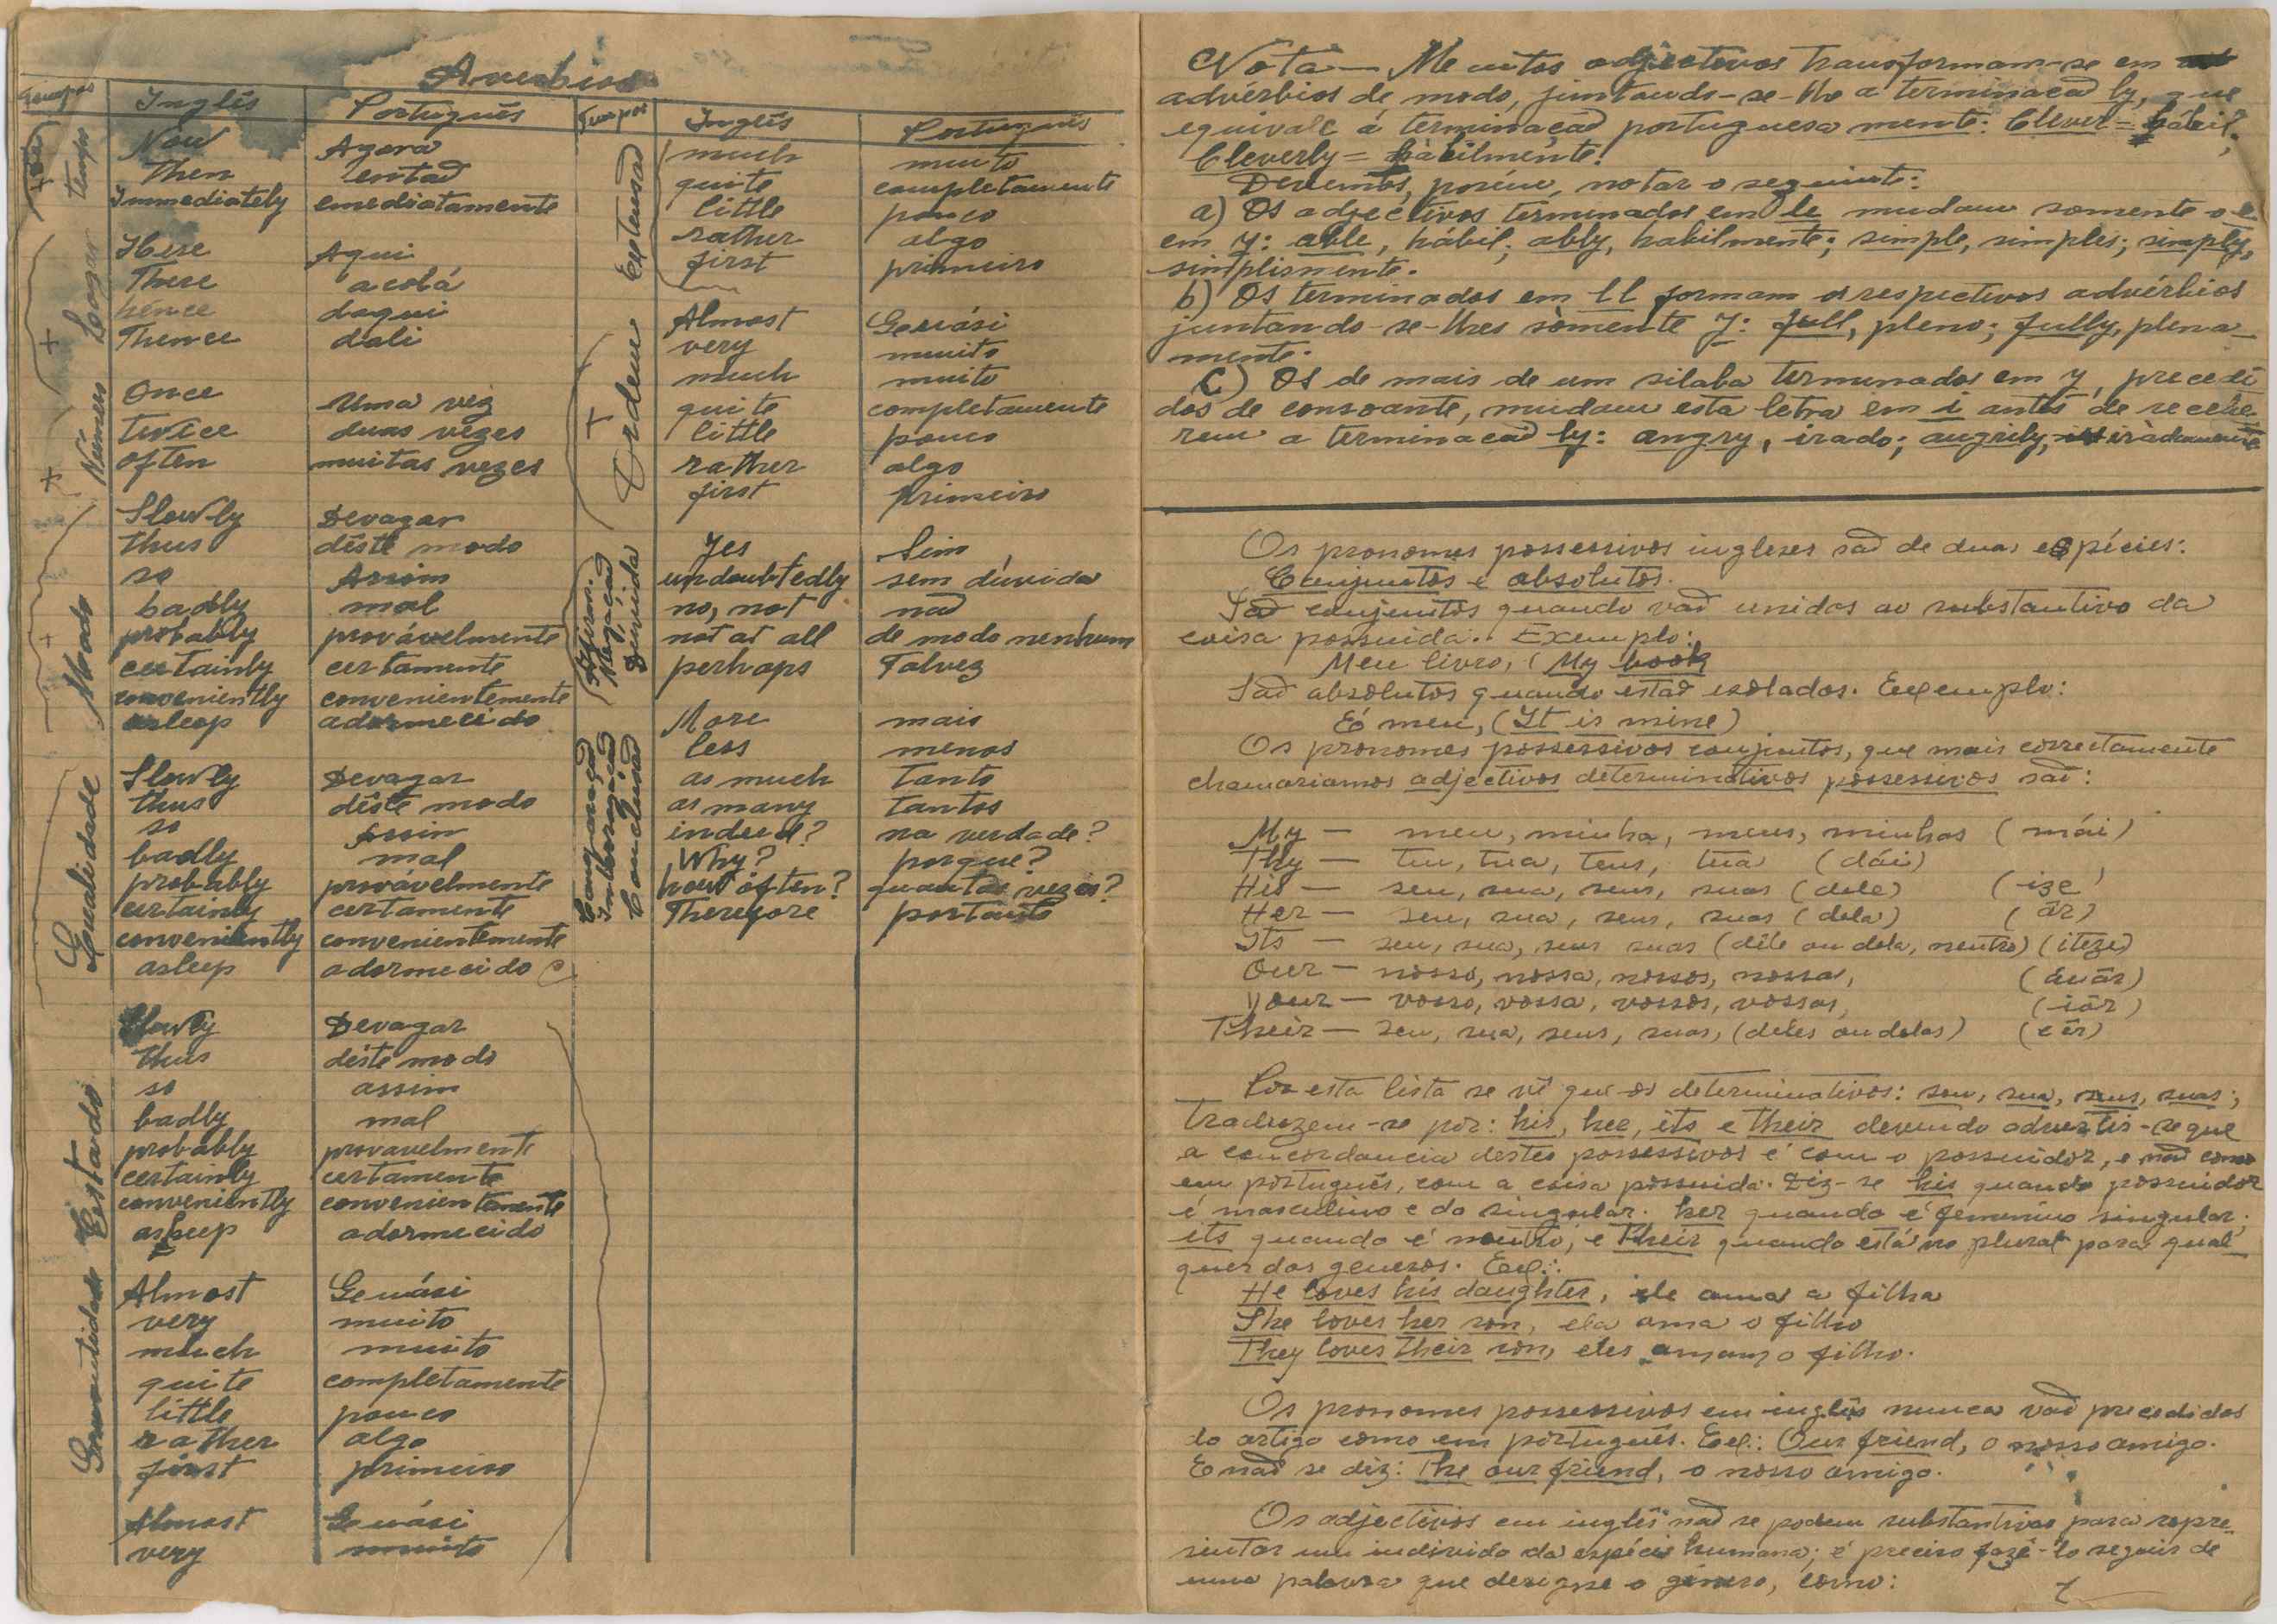 Adverbios
Grupos Inglês Português
tempo
Now Agora
Then entaõ
Immediately emediatamente
Logar
Here Aqui
There acolá
hence daqui
Thence dali
Número
Once Uma vez
twice duas vêzes
often muitas vezes
Modo
Slowly Devagar
thus dêste modo
so Assim
badly mal
probably provávelmente
certainly certamente
conveniently convenientemente
asleep adormecido
Qualidade
Slowly Devagar
thus dêste modo
so Assim
badly mal
probably provávelmente
certainly certamente
conveniently convenientemente
asleep adormecido
Estado
Slowly Devagar
thus dêste modo
so assim
badly mal
probably provavelmente
certainly certamente
conveniently convenientemente
asleep adormecido
Quantidade
Almost Quási
very muito
much muito
quite completamente
little pouco
rather algo
first primeiro
Almost Quási
very muito
Grupos Inglês Português
Extensaõ
much muito
quite completamente
little pouco
rather algo
first primeiro
Ordem
Almost Quási
very muito
much muito
quite completamente
little pouco
rather algo
first primeiro
Afirm.
Negaçaõ
Duvida
Yes Sim
undoubtedly sem dúvida
no, not naõ
not at all de modo nenhum
perhaps Talvez
Comparaçaõ
Interrogaçaõ
Conclusaõ
More mais
less menos
as much tanto
as many tantos
indeed? na verdade?
Why? porque?
how often? quantas vezes?
Therefore portanto
Nota — Muitos adjectivos transformam-se em
advérbios de modo, juntando-se-lhe a terminacaõ ly, que
equivale á terminaçaõ portuguesa mente: Clever = hábil;
Cleverly = hàbilmente.
Devemos, porém, notar o seguinte:
a) Os adjectivos terminados em le mudam somente o e
em y: able, hábil; ably, habilmente; simple, simples; simply,
simplismente.
b) Os terminados em ll formam os respectivos advérbios
juntando-se-lhes sòmente y: full, pleno; fully, plena-
mente.
C) Os de mais de um silaba terminados em y, precedi
dos de consoante, mudam esta letra em i antes de recebe-
rem a terminacaõ ly: angry, irado; angrily, iràdamente
Os pronomes possessivos ingleses saõ de duas espécies:
Conjuntos e absolutos.
Saõ conjuntos quando vaõ unidos ao substantivo da
coisa possuida. Exemplo:
Meu livro, (My book
Saõ absolutos quando estaõ isolados. Exemplo:
É meu, (It is mine)
Os pronomes possessivos conjuntos, que mais correctamente
chamariamos adjectivos determinativos possessivos saõ:
My — meu, minha, meus, minhas (mái)
Thy — teu, tua, teus, tua (dái)
His — seu, sua, seus, suas (dele) (ize)
Her — seu, sua, seus, suas (dela) (âr)
Its — seu, sua, seus suas (dêle ou dela, neutro) (iteze)
Our — nosso, nossa, nossos, nossas, (áuâr)
Your — vosso, vossa, vossos, vossas, (iâr)
Their — seu, sua, seus, suas, (deles ou delas) (eêr)
Por esta lista se vê que os determinativos: seu, sua, seus, suas;
traduzem-se por: his, her, its e their devendo advertir-se que
a concordancia destes possessivos é com o possuidor, e naõ como
em português, com a coisa possuida. Diz-se his quando possuidor
é masculino e do singular. her quando é femenino singular;
its quando é neutro; e Their quando está no plural para qual
quer dos generos. Ex.:
He loves his daughter, ele ama a filha
She loves her son, ela ama o filho
They loves their son, eles amam o filho.
Os pronomes possessivos em inglês nunca vaõ precedidos
do artigo como em português. Ex.: Our friend, o nosso amigo.
E naõ se diz: The our friend, o nosso amigo.
Os adjectivos em inglês naõ se podem substantivar para repre-
sentar um individo da espécie humana; é preciso fazê-lo seguir de
uma palavra que designe o género, como: